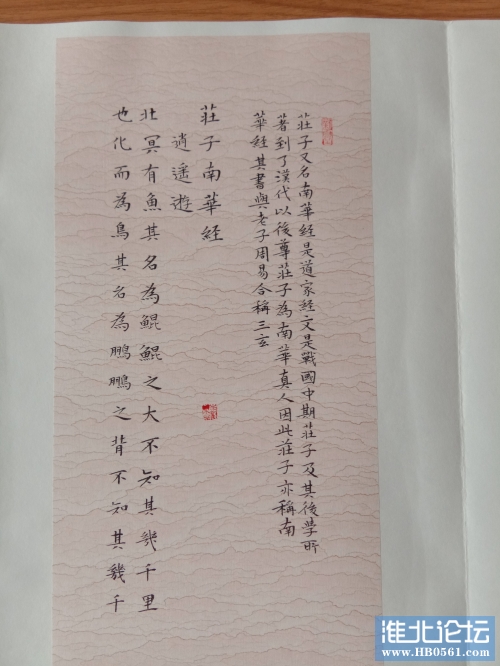 莊子又名南華經是道家經文是戰國中期莊子及其後學所
著到了漢代以後尊莊子為南華真人因此莊子亦稱南
華經其書與老子周易合稱三玄
莊子南華经
逍遥遊
北冥有魚其名為鯤鯤之大不知其幾千里
也化而為鳥其名為鵬鵬之背不知其幾千
淮北论坛
www.HB0561.com